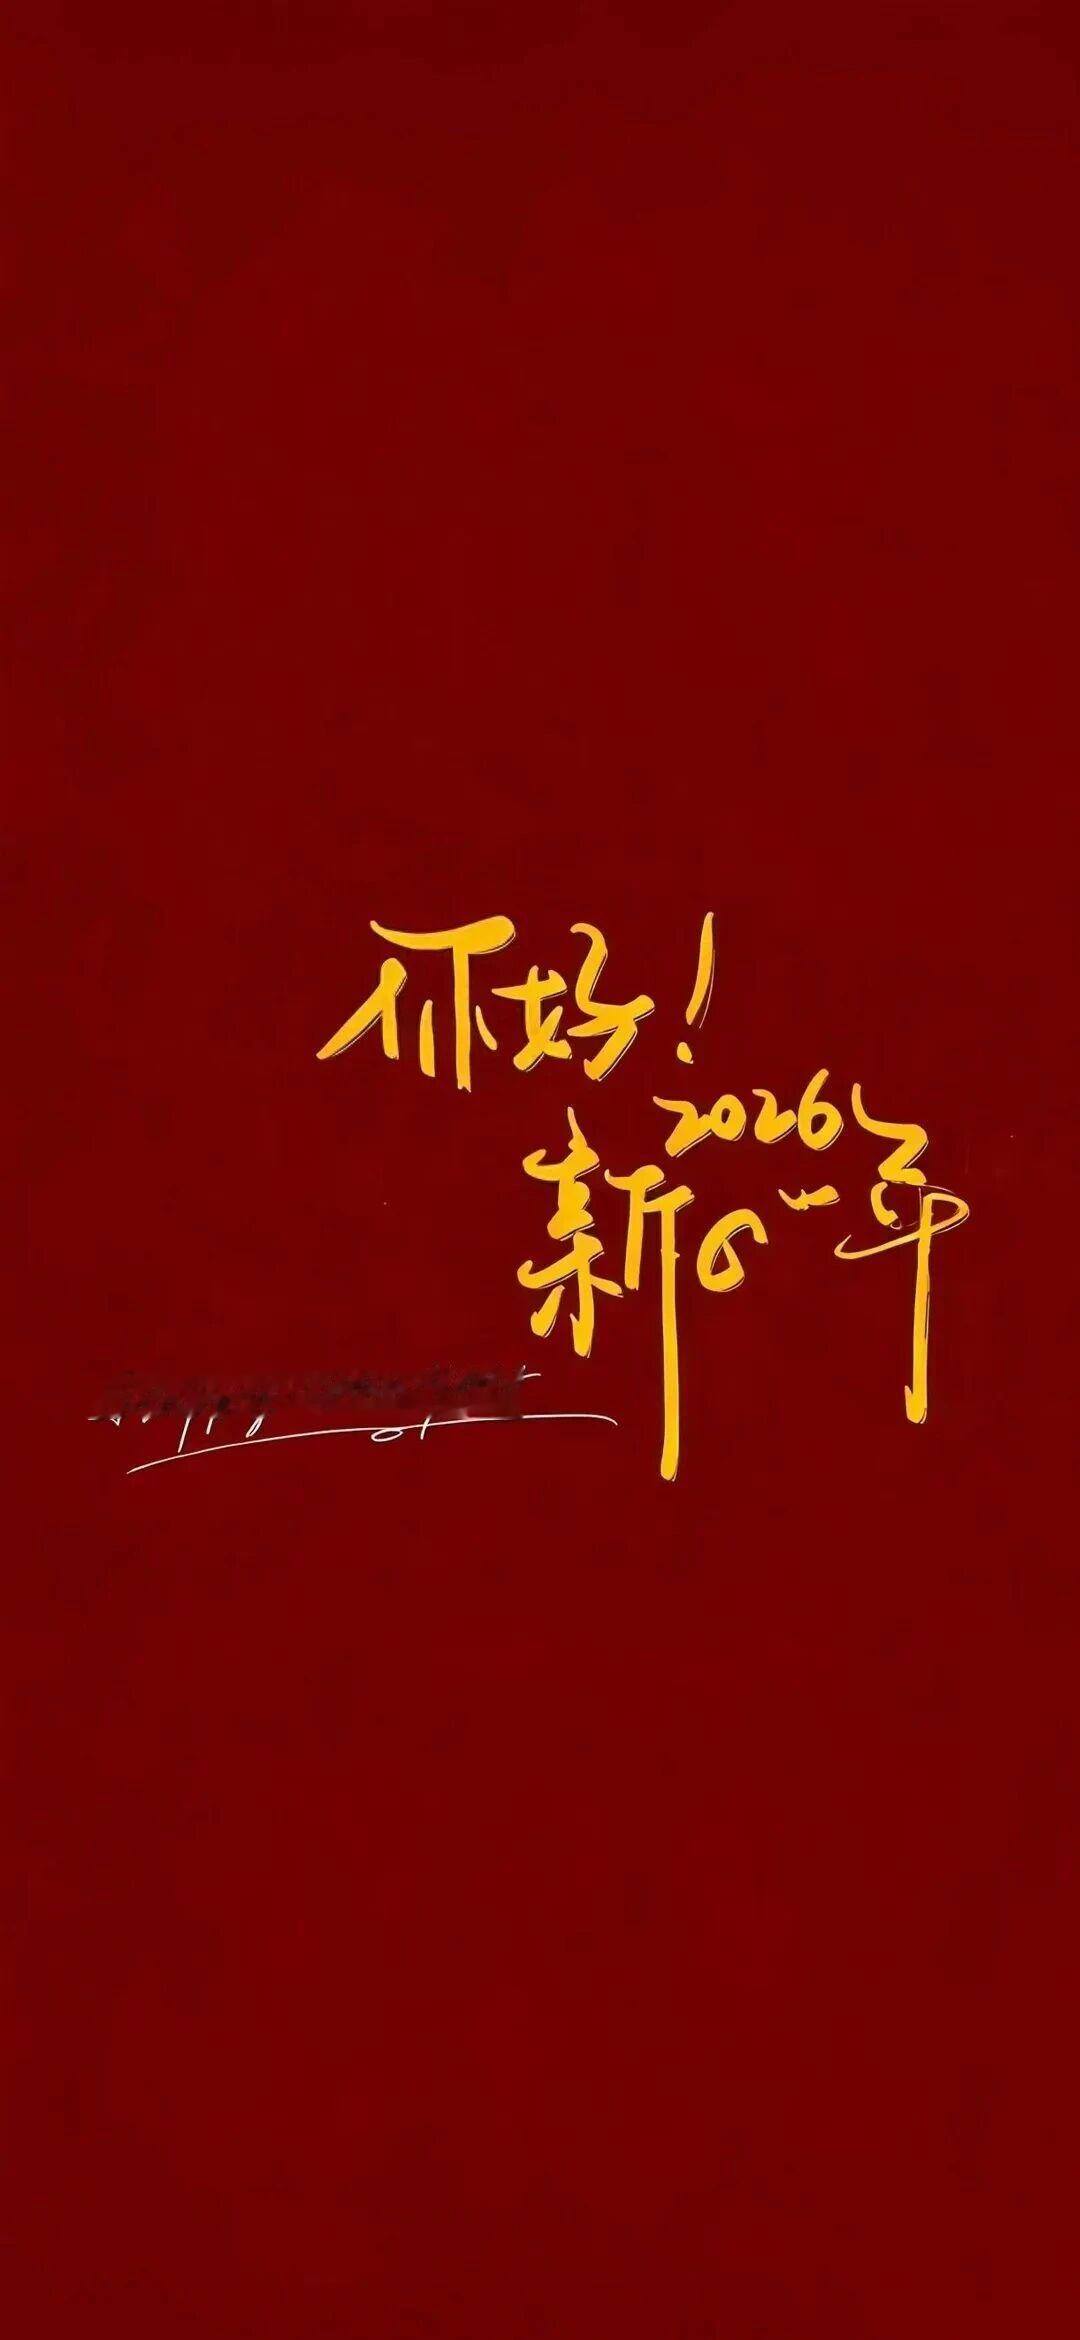 你好!
2026
新的一年